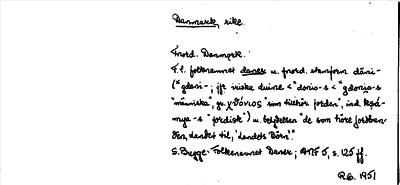 Danmark, rike.
Fnord. Danmǫrk.
F.l. folknamnet daner u. fnord. stamform dāni-
(*ǥðani- ; jfr iriska duine < *donio-s < *gdonio-s
"människa", gr. χθόνιος "som tillhör jorden", ind.
-s "jordisk") m. betydelsen "de som höra
den, landet till, 'landets barn'."
S. Bugge: Folkenavnet Daner; ANF 5, s. 125 ff.
R.G. 1951